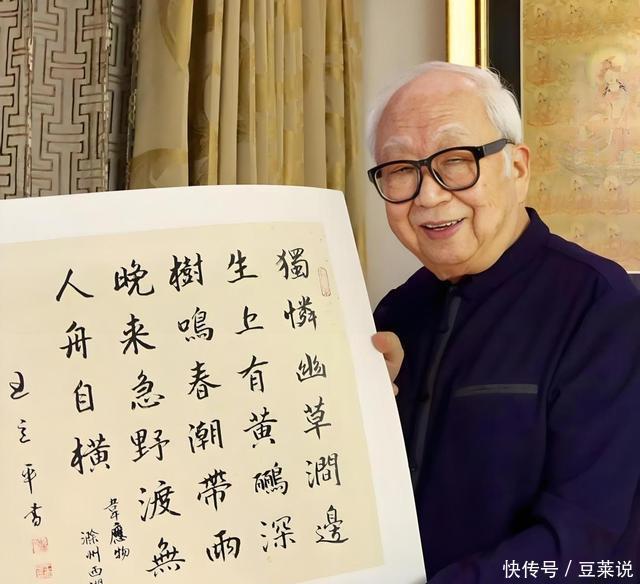 獨憐幽草澗邊
生上有黃鸝深
樹鳴春潮帶雨
晚来急野渡無
人舟自橫
韋應物
滁州西澗
王立平書
快传号 / 豆莱说